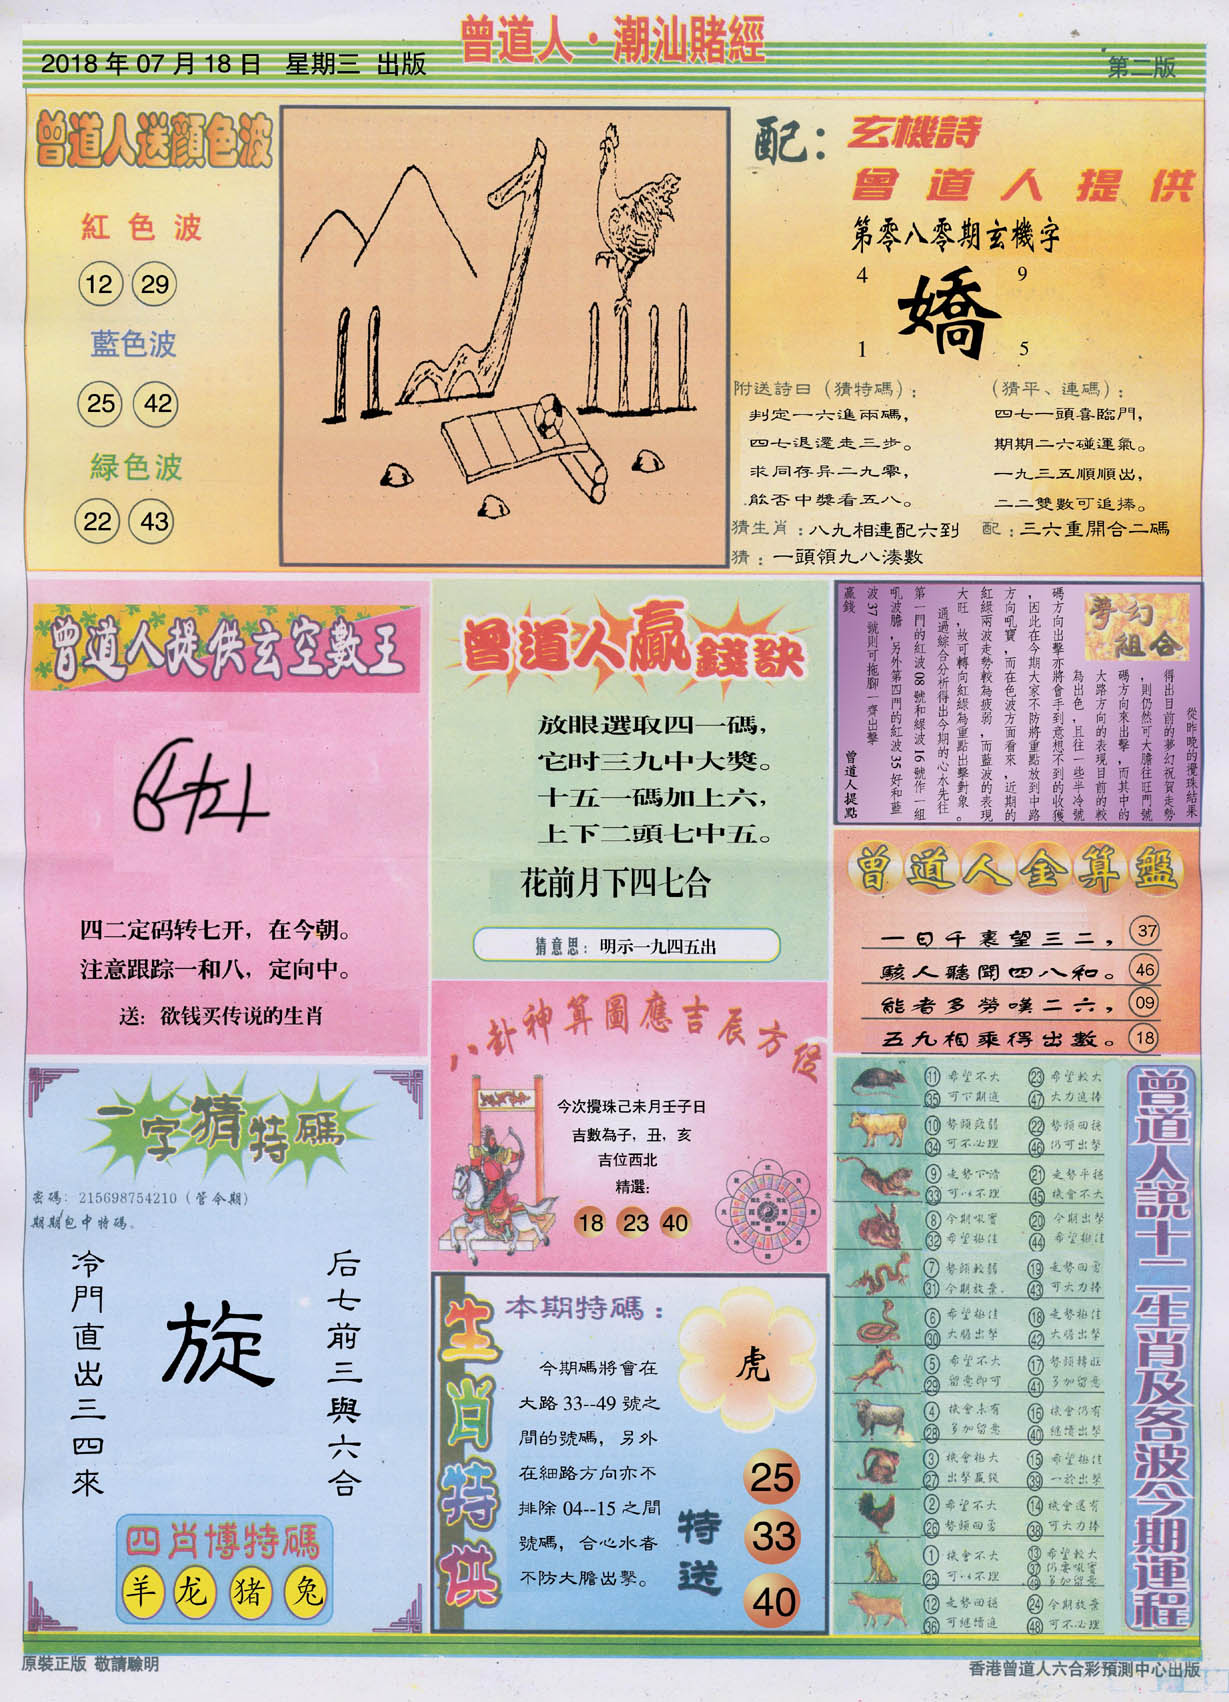 曾道人·潮汕賭經
2018年07月18日 星期三 出版
第二版
曾道人送顏色波
紅色波
12 29
藍色波
25 42
緑色波
22 43
配：玄機詩
曾道人提供
第零八零期玄機字
4 9
嬌
1 5
附送詩曰（猜特碼）：
判定一六進兩碼，
四七退還走三步。
求同存异二九零，
能否中獎看五八。
猜生肖：八九相連配六到
猜：一頭領九八湊數
（猜平、連碼）：
四七一頭喜臨門，
期期二六碰運氣。
一九三五順順出，
二二雙數可追捧。
配：三六重開合二碼
曾道人提供玄空數王
四二定码转七开，在今朝。
注意跟踪一和八，定向中。
送：欲钱买传说的生肖
曾道人贏錢訣
放眼選取四一碼，
它时三九中大獎。
十五一碼加上六，
上下二頭七中五。
花前月下四七合
猜意思：明示一九四五出
夢幻組合
從昨晚的攪珠結果
得出目前的夢幻祝賀走勢
，則仍然可大膽往旺門號
碼方向來出擊，而其中的
大路方向的表現目前的較
為出色，且往一些半冷號
碼方向出擊亦將會手到意想不到的收獲
，因此在今期大家不防將重點放到中路
方向吼寶，而在色波方面看來，近期的
紅綠兩波走勢較為疲弱，而藍波的表現
大旺，故可轉向紅綠為重點出擊對象。
通過綜合分析得出今期的心水先往
第一門的紅波08號和綠波16號作一組
吼波膽，另外第四門的紅波35好和藍
波37號則可拖腳一齊出擊
贏錢
曾道人提點
曾道人金算盤
一日千裏望三二， 37
駭人聽聞四八和。 46
能者多勞嘆二六， 09
五九相乘得出數。 18
一字猜特碼
密碼：215698754210（管令期）
期期包中特碼。
冷門直出三四來
旋
后七前三與六合
四肖博特碼
羊 龙 猪 兔
八卦神算圖應吉辰方位
今次攪珠己未月壬子日
吉數為子，丑，亥
吉位西北
精選：
18 23 40
生肖特供
本期特碼：
虎
今期碼將會在
大路33--49號之
間的號碼，另外
在細路方向亦不
排除04--15之間
號碼，合心水者
不防大膽出擊。
特送
25
33
40
曾道人説十二生肖及各波今期運程
11 希望不大 23 希望較大
35 可下期進 47 大力追捧
10 勢頭疲弱 22 勢頭回穩
34 可不必理 46 仍可出擊
9 走勢下滑 21 走勢平穩
33 可以不理 45 機會不大
8 今期吼寶 20 今期出擊
32 希望極佳 44 希望極佳
7 勢頭較弱 19 走勢回勇
31 今期放棄 43 可大力捧
6 希望極佳 18 走勢極佳
30 大膽出擊 42 大膽出擊
5 希望不大 17 勢頭轉旺
29 留意即可 41 多加留意
4 機會未有 16 機會仍有
28 多加留意 40 繼續出擊
3 機會極大 15 希望極佳
27 出擊贏錢 39 一於出擊
2 希望不大 14 機會還有
26 勢頭回勇 38 可大力捧
1 機會不大 13 希望較大
25 可以不理 37 仍要吼實
49 多加留意
12 走勢回穩 24 今期放棄
36 可繼續進 48 可不必理
原裝正版 敬請驗明
香港曾道人六合彩預測中心出版